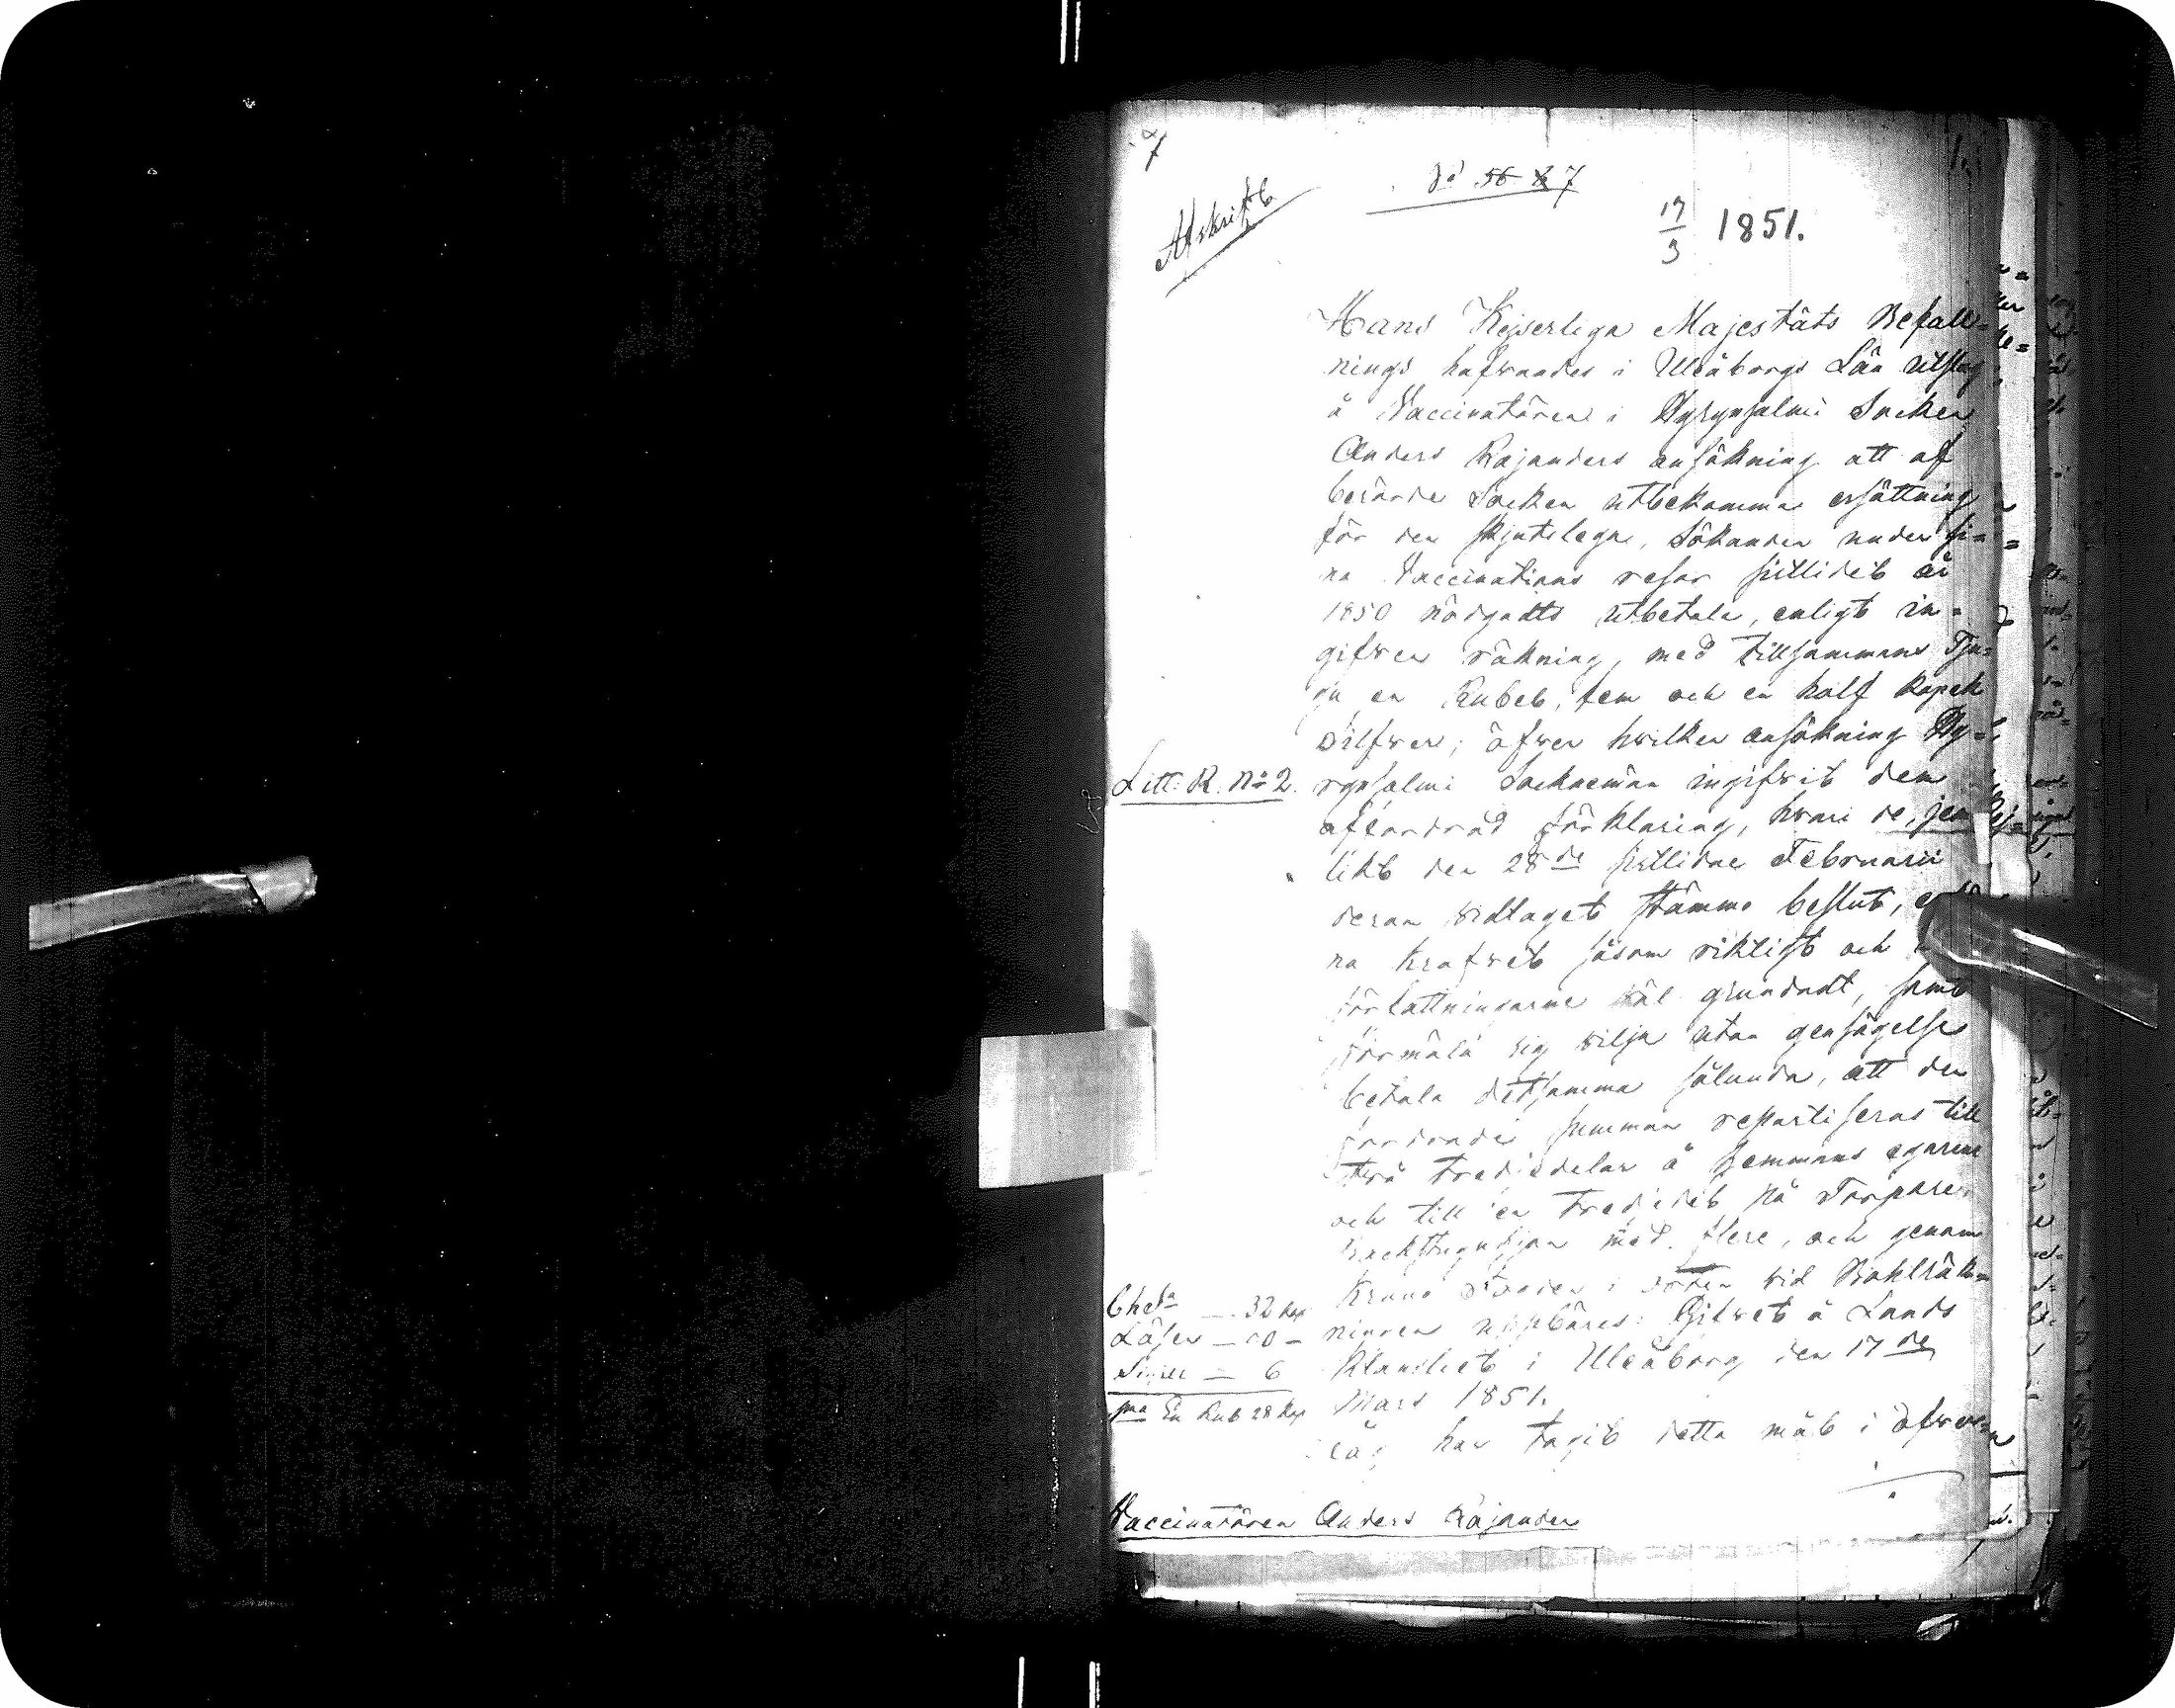 7
1.
Afskrift
No 56 & 7
17/3 1851.
Hans Kejserliga Majestäts Befall=
nings hafvandes i Uleåborgs Län utslag
å Vaccinatören i Hyrynsalmi Socken
Anders Kajanders ansökning att af
berörde Socken utbekomma ersättning
för den skjutslega, Sökanden under si=
na Vaccinations resor sistlidet år
1850 nödgadts utbetala, enligt in=
gifven räkning, med tillsammans Tju=
gu en Rubel, fem och en half kopek
Silfver; öfver hvilken ansökning Hy=
rynsalmi Sockneman ingifvit den
Litt: R. No 2.
affordrad förklaring, hvari de, jem
likt den 28de sistlidne Februarii
deran vidtaget stämmo beslut,
na krafvet såsom riktigt och
författningarne väl grundadt, samt
förmäla sig vilja utan gensägelse
betala detsamma sålunda, att den
fordrade summan repartiseras till
två tredjedelar å hemmans egarene
och till en tredjedel på Torpare
Backstugusjon med flere, och genom
Krono Fogden i orten vid Bokhläk=
ningen uppbäres: Gifvet å Lands
Kansliet i Uleåborg den 17de
Mars 1851.
Chas — 32 kop
Lösen — 90 —
— 6
Sma En Rub 28 kop
har tagit detta mål i öfver=
Vaccinatören Anders Kajander